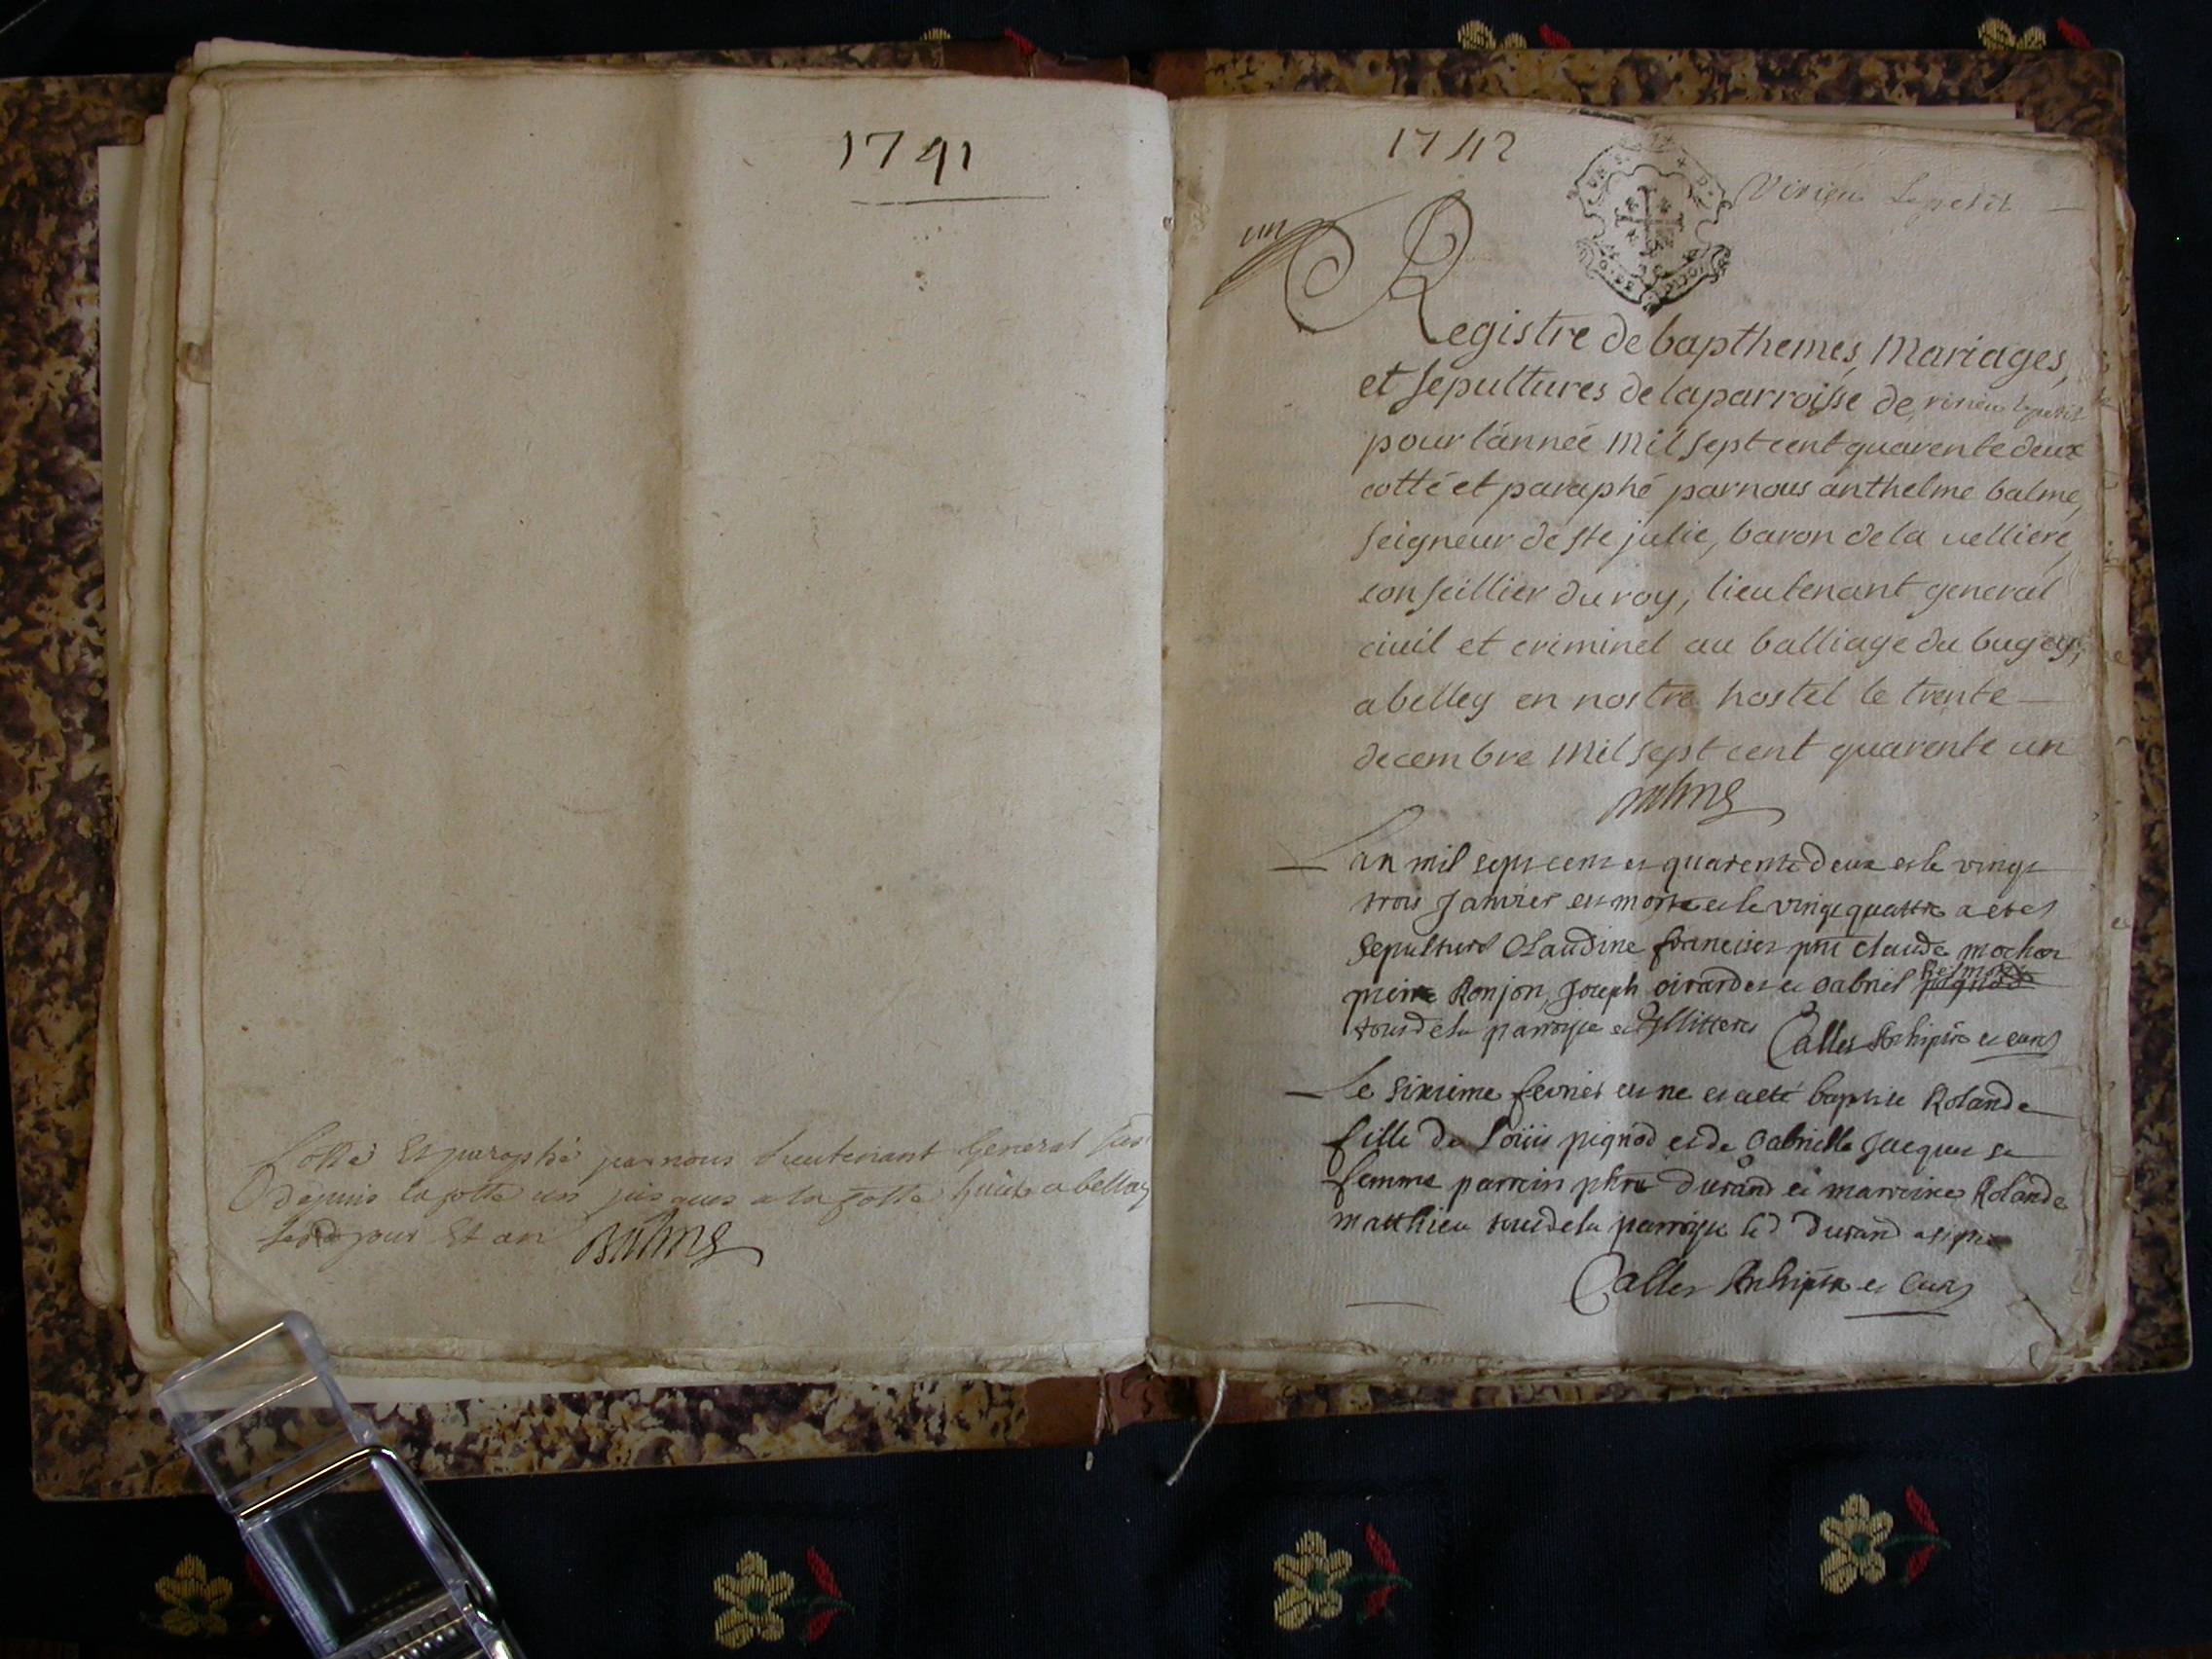 1741
Cotté et paraphé par nous Lieutenant General
depuis la cotte un jusques a la cotte huit a belley
jour et an Balme
1742
Virieu Lepetit
un
Registre de bapthemes, Mariages,
et sepultures de la parroisse de, virieu lepetit
pour l'année Mil sept cent quarente deux
cotté et paraphé par nous anthelme balme,
seigneur de ste julie, baron de la velliere,
conseillier du roy, lieutenant general
civil et criminel au balliage du bugey,
a belley en nostre hostel le trente
decembre Mil sept cent quarente un
Balme
Lan mil sept cent et quarente deux et le vingt
trois Janvier est morte et le vingt quattre a eté
sepulturé Claudine pnt Claude mochon
pierre Ronjon, Joseph Girardet et Gabriel
tous de la parroisse et Illitteres Calles Archiptre et curé
Le sixieme fevrier est ne et a eté baptise Rolande
fille de Loüis pignod et de Gabrielle Jacques sa
femme parrein durand et marreine Rolande
Matthieu tous de la parroisse led durand a signé
Calles Archiptre et Curé